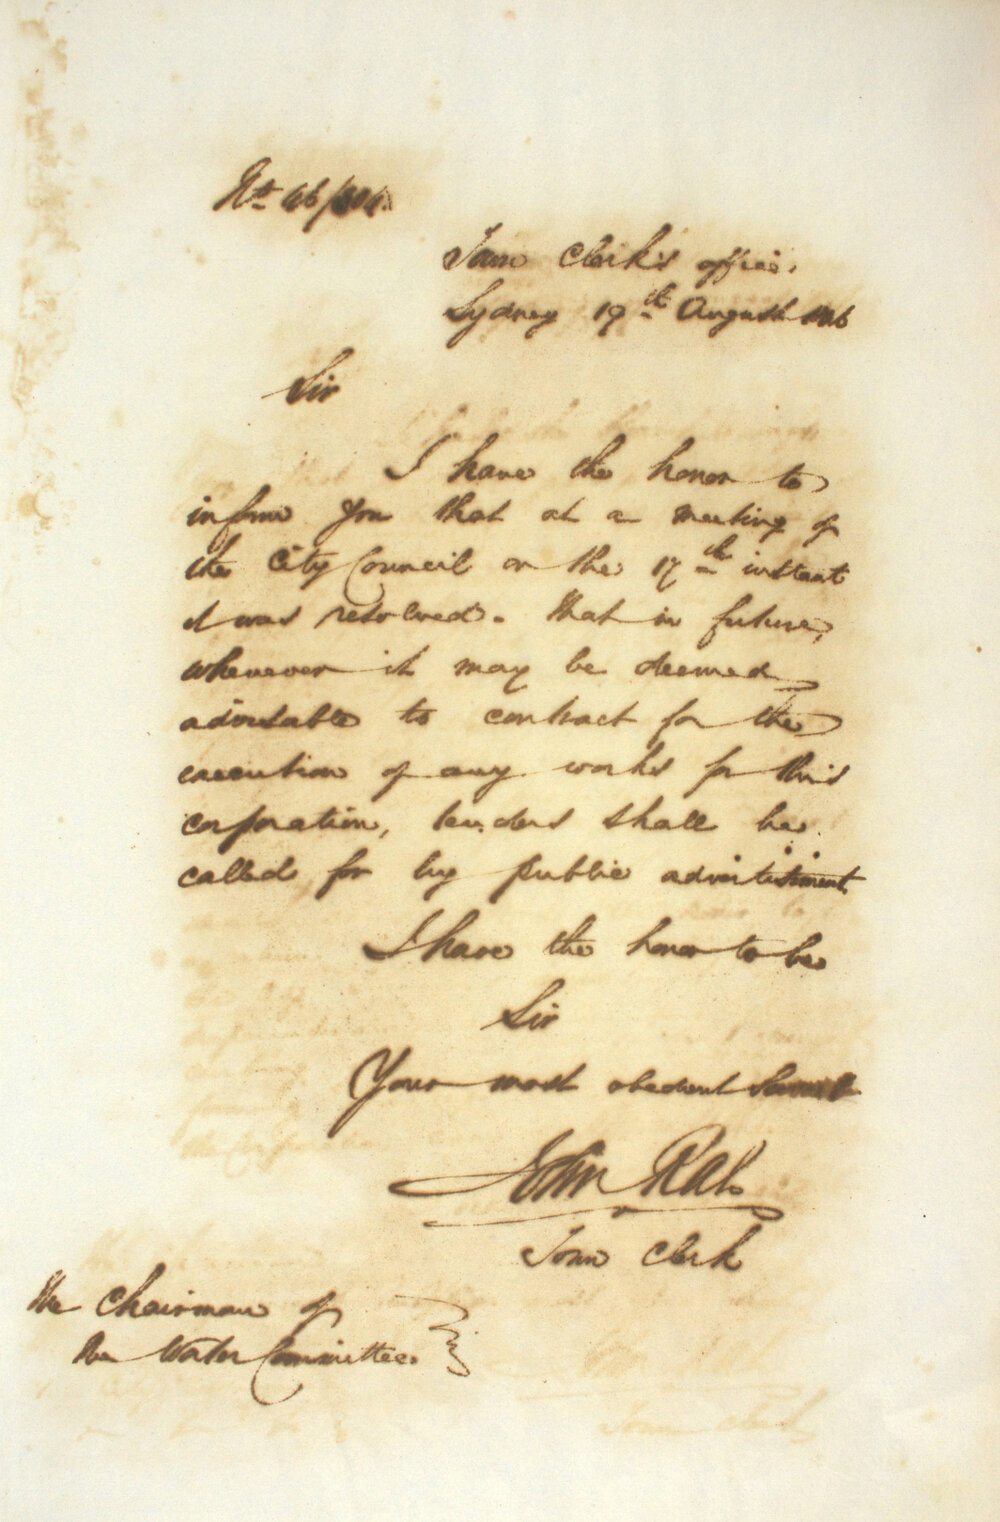 No. 46/
Town Clerk's office,
Sydney 19th August 1846
Sir
I have the honor to
inform you that at a meeting of
the City Council on the 17th instant
it was resolved. That in future,
whenever it may be deemed
advisable to contract for the
execution of any works for this
corporation, tenders shall be
called for by public advertisement.
I have the honor to be
Sir
Your most obedient Servant
John Rae
Town Clerk
The Chairman of
the Water Committee